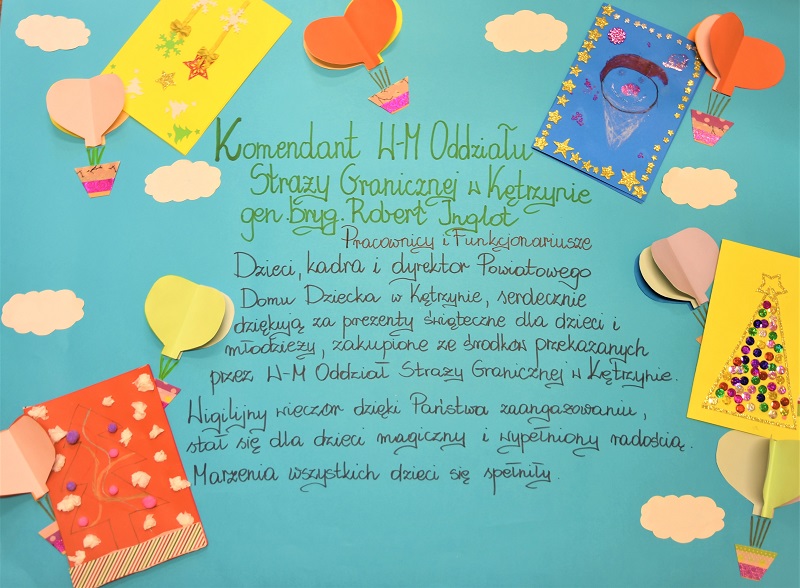 Komendant W-M Oddziału
Straży Granicznej w Kętrzynie
gen. bryg. Robert Inglot
Pracownicy i Funkcjonariusze
Dzieci, kadra i dyrektor Powiatowego
Domu Dziecka w Kętrzynie, serdecznie
dziękują za prezenty świąteczne dla dzieci i
młodzieży, zakupione ze środków przekazanych
przez W-M Oddział Straży Granicznej w Kętrzynie.
Wigilijny wieczór dzięki Państwa zaangażowaniu,
stał się dla dzieci magiczny i wypełniony radością.
Marzenia wszystkich dzieci się spełniły.